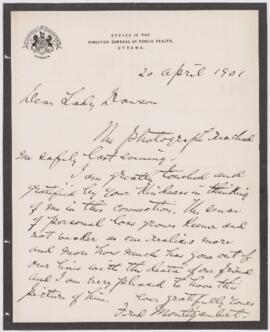 OFFICE OF THE
DIRECTOR GENERAL OF PUBLIC HEALTH,
OTTAWA.
20 April 1901
Dear Lady Dawson
The photograph reached
me safely last evening.
I am greatly touched and
gratified by your kindness in thinking
of me in this connection. The sense
of personal loss grows keener and
not weaker as one realises more
and more how much has gone out of
our lives with the death of our friend
and I am very pleased to have this
picture of him.
Your gratefully
Fred Montizambert